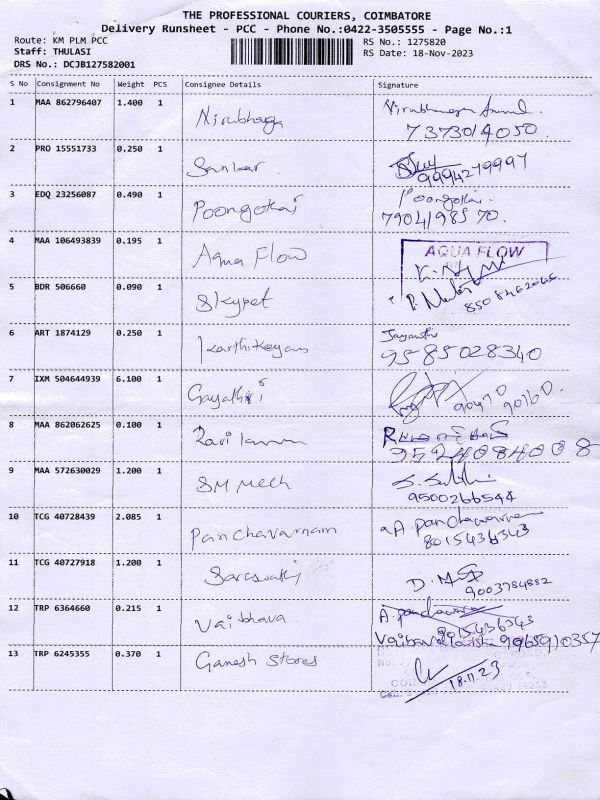 THE PROFESSIONAL COURIERS, COIMBATORE
Delivery Runsheet - PCC - Phone No.:0422-3505555 - Page No.:1
Route: KM PLM PCC
Staff: THULASI
DRS No.: DCJB127582001
RS No.: 1275820
RS Date: 18-Nov-2023
S No Consignment No Weight PCS Consignee Details Signature
1 MAA 862796407 1.400 1 Nirubhaga
7373014050.
2 PRO 15551733 0.250 1 Sankar.
9994279997
3 EDQ 23256087 0.490 1 Poongotkai Poongotkai.
7904198570.
4 MAA 106493839 0.195 1 Aqua Flow AQUA FLOW
5 BDR 506660 0.090 1 Skypet
8508462066
6 ART 1874129 0.250 1 Karthikeyan Jayanthi
9585028340
7 IXM 504644939 6.100 1 Gayathri 90470 90160.
8 MAA 862062625 0.100 1 Ravi
9524084008
9 MAA 572630029 1.200 1 SM Mech
9500266544
10 TCG 40728439 2.085 1 Panchavarnam A. panchavarna
8015436343
11 TCG 40727918 1.200 1 Saraswathi D.
9003784882
12 TRP 6364660 0.215 1 Vaibhava. A. panchavarna
8015436343
9065910357
13 TRP 6245355 0.370 1 Ganesh Stores
18.11.23